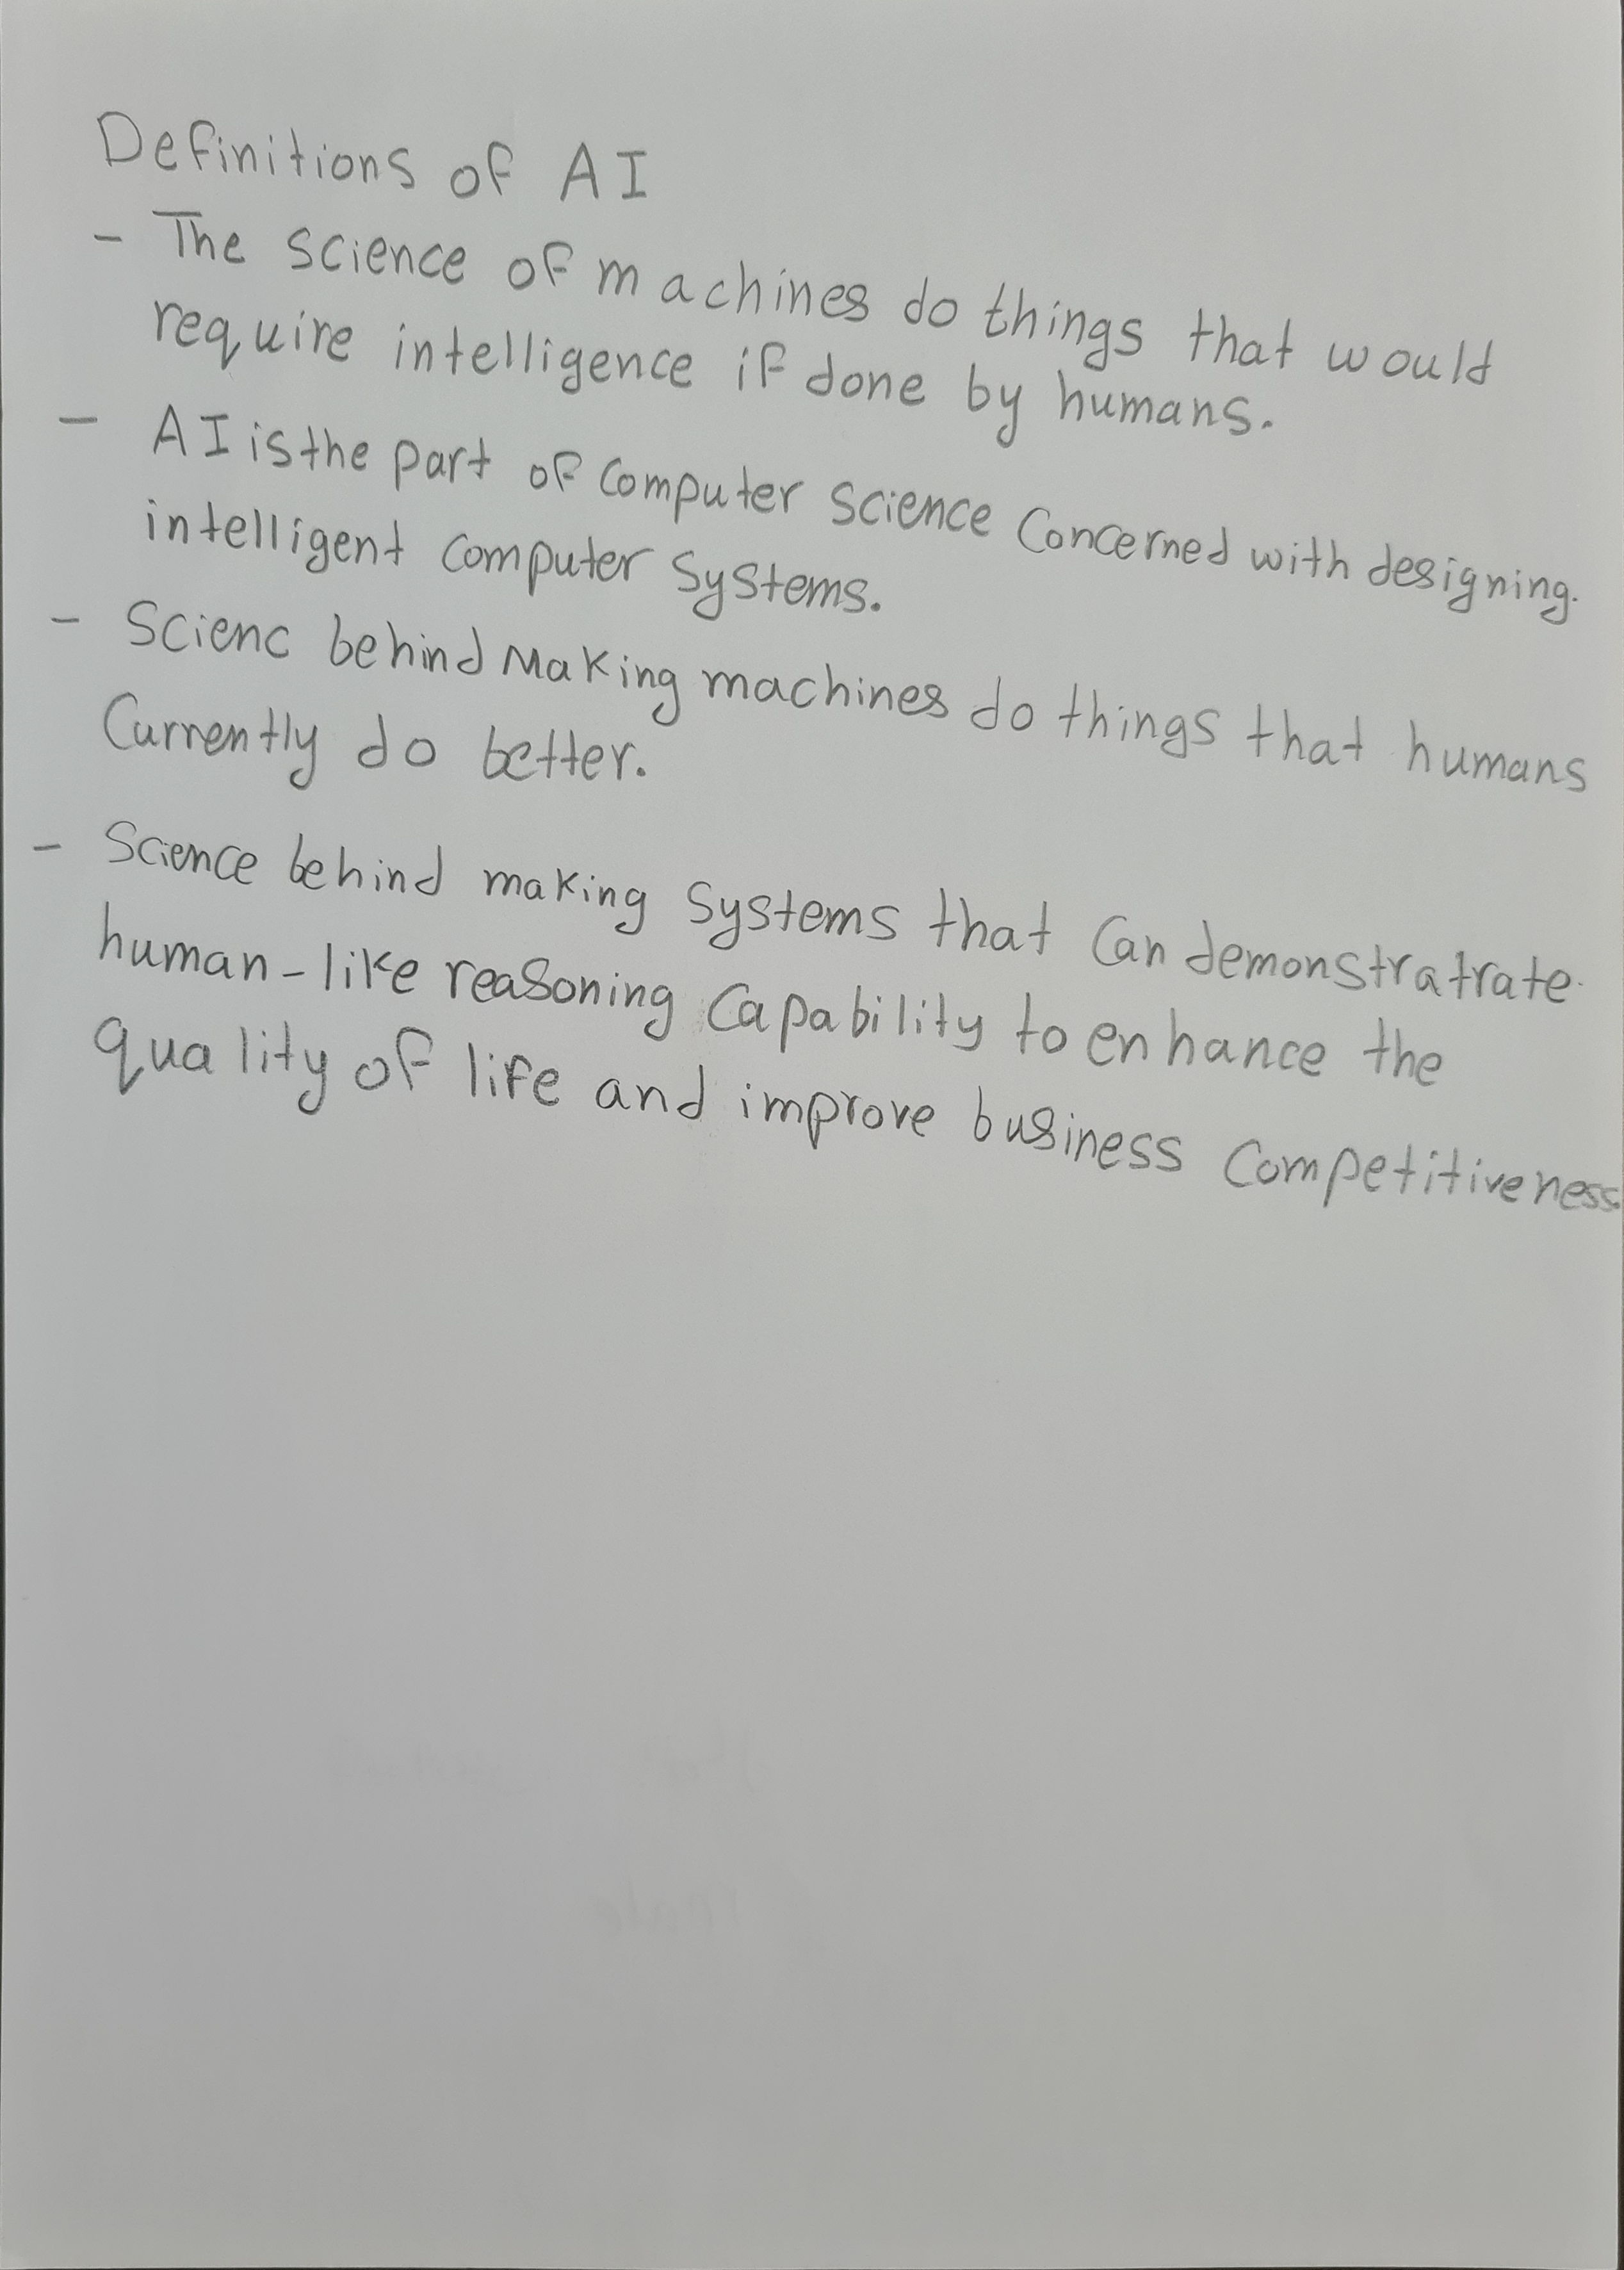 Definitions of AI
- The science of machines do things that would
require intelligence if done by humans.
- AI is the part of computer science concerned with designing.
intelligent computer systems.
- Scienc behind Making machines do things that humans
Currently do better.
- Science behind making systems that can demonstratrate
human-like reasoning capability to enhance the
quality of life and improve business competitiveness